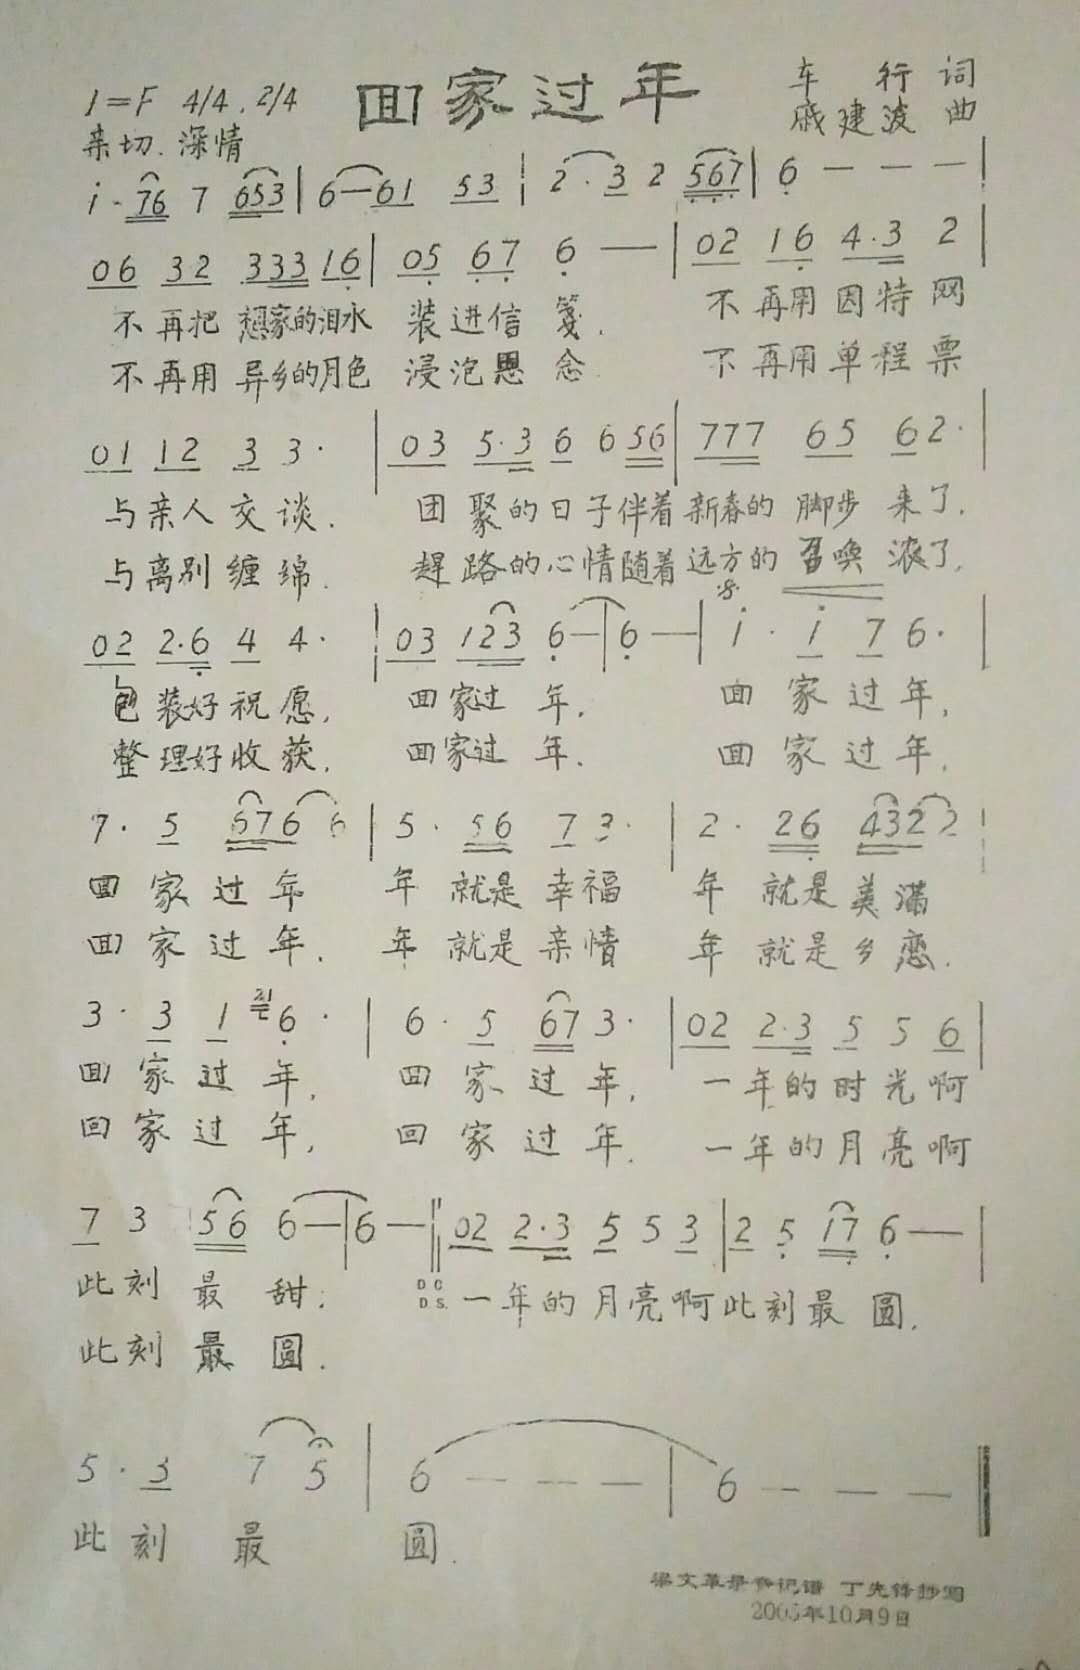 回家过年
1=F 4/4 . 2/4
车 行 词
亲切.深情
戚建波 曲
i · 76 7 653 | 6 — 61 53 | 2 · 3 2 567 | 6 — — — |
06 32 3333 16 | 05 67 6 — | 02 16 4·3 2 |
不再把 想家的泪水 装进信笺. 不再用因特网
不再用 异乡的月色 浸泡思念. 不再用单程票
01 12 3 3· | 03 5·3 6 6 56 | 777 65 6 2· |
与亲人交谈. 团聚的日子伴着新春的 脚步 来了,
与离别缠绵. 赶路的心情随着远方的 召唤 浓了,
02 2·6 4 4· | 03 123 6 — | 6 — | i · i 7 6· |
包装好祝愿, 回家过年, 回家过年,
整理好收获, 回家过年. 回家过年,
7· 5 6766 | 5 · 56 7 3· | 2 · 26 4322 |
回家过年 年就是幸福 年就是美满
回家过年, 年就是亲情 年就是乡恋.
3 · 3 1 6 · | 6 · 5 67 3· | 02 2·3 5 5 6 |
回家过年, 回家过年, 一年的时光啊
回家过年, 回家过年. 一年的月亮啊
7 3 56 6 — | 6 — || 02 2·3 5 5 3 | 2 5 17 6 — |
此刻最甜; D C D.S. 一年的月亮啊此刻最圆.
此刻最圆.
5 · 5 7 5 | 6 — — — | 6 — — —
此刻最圆.
记谱 丁先锋抄写
年10月9日